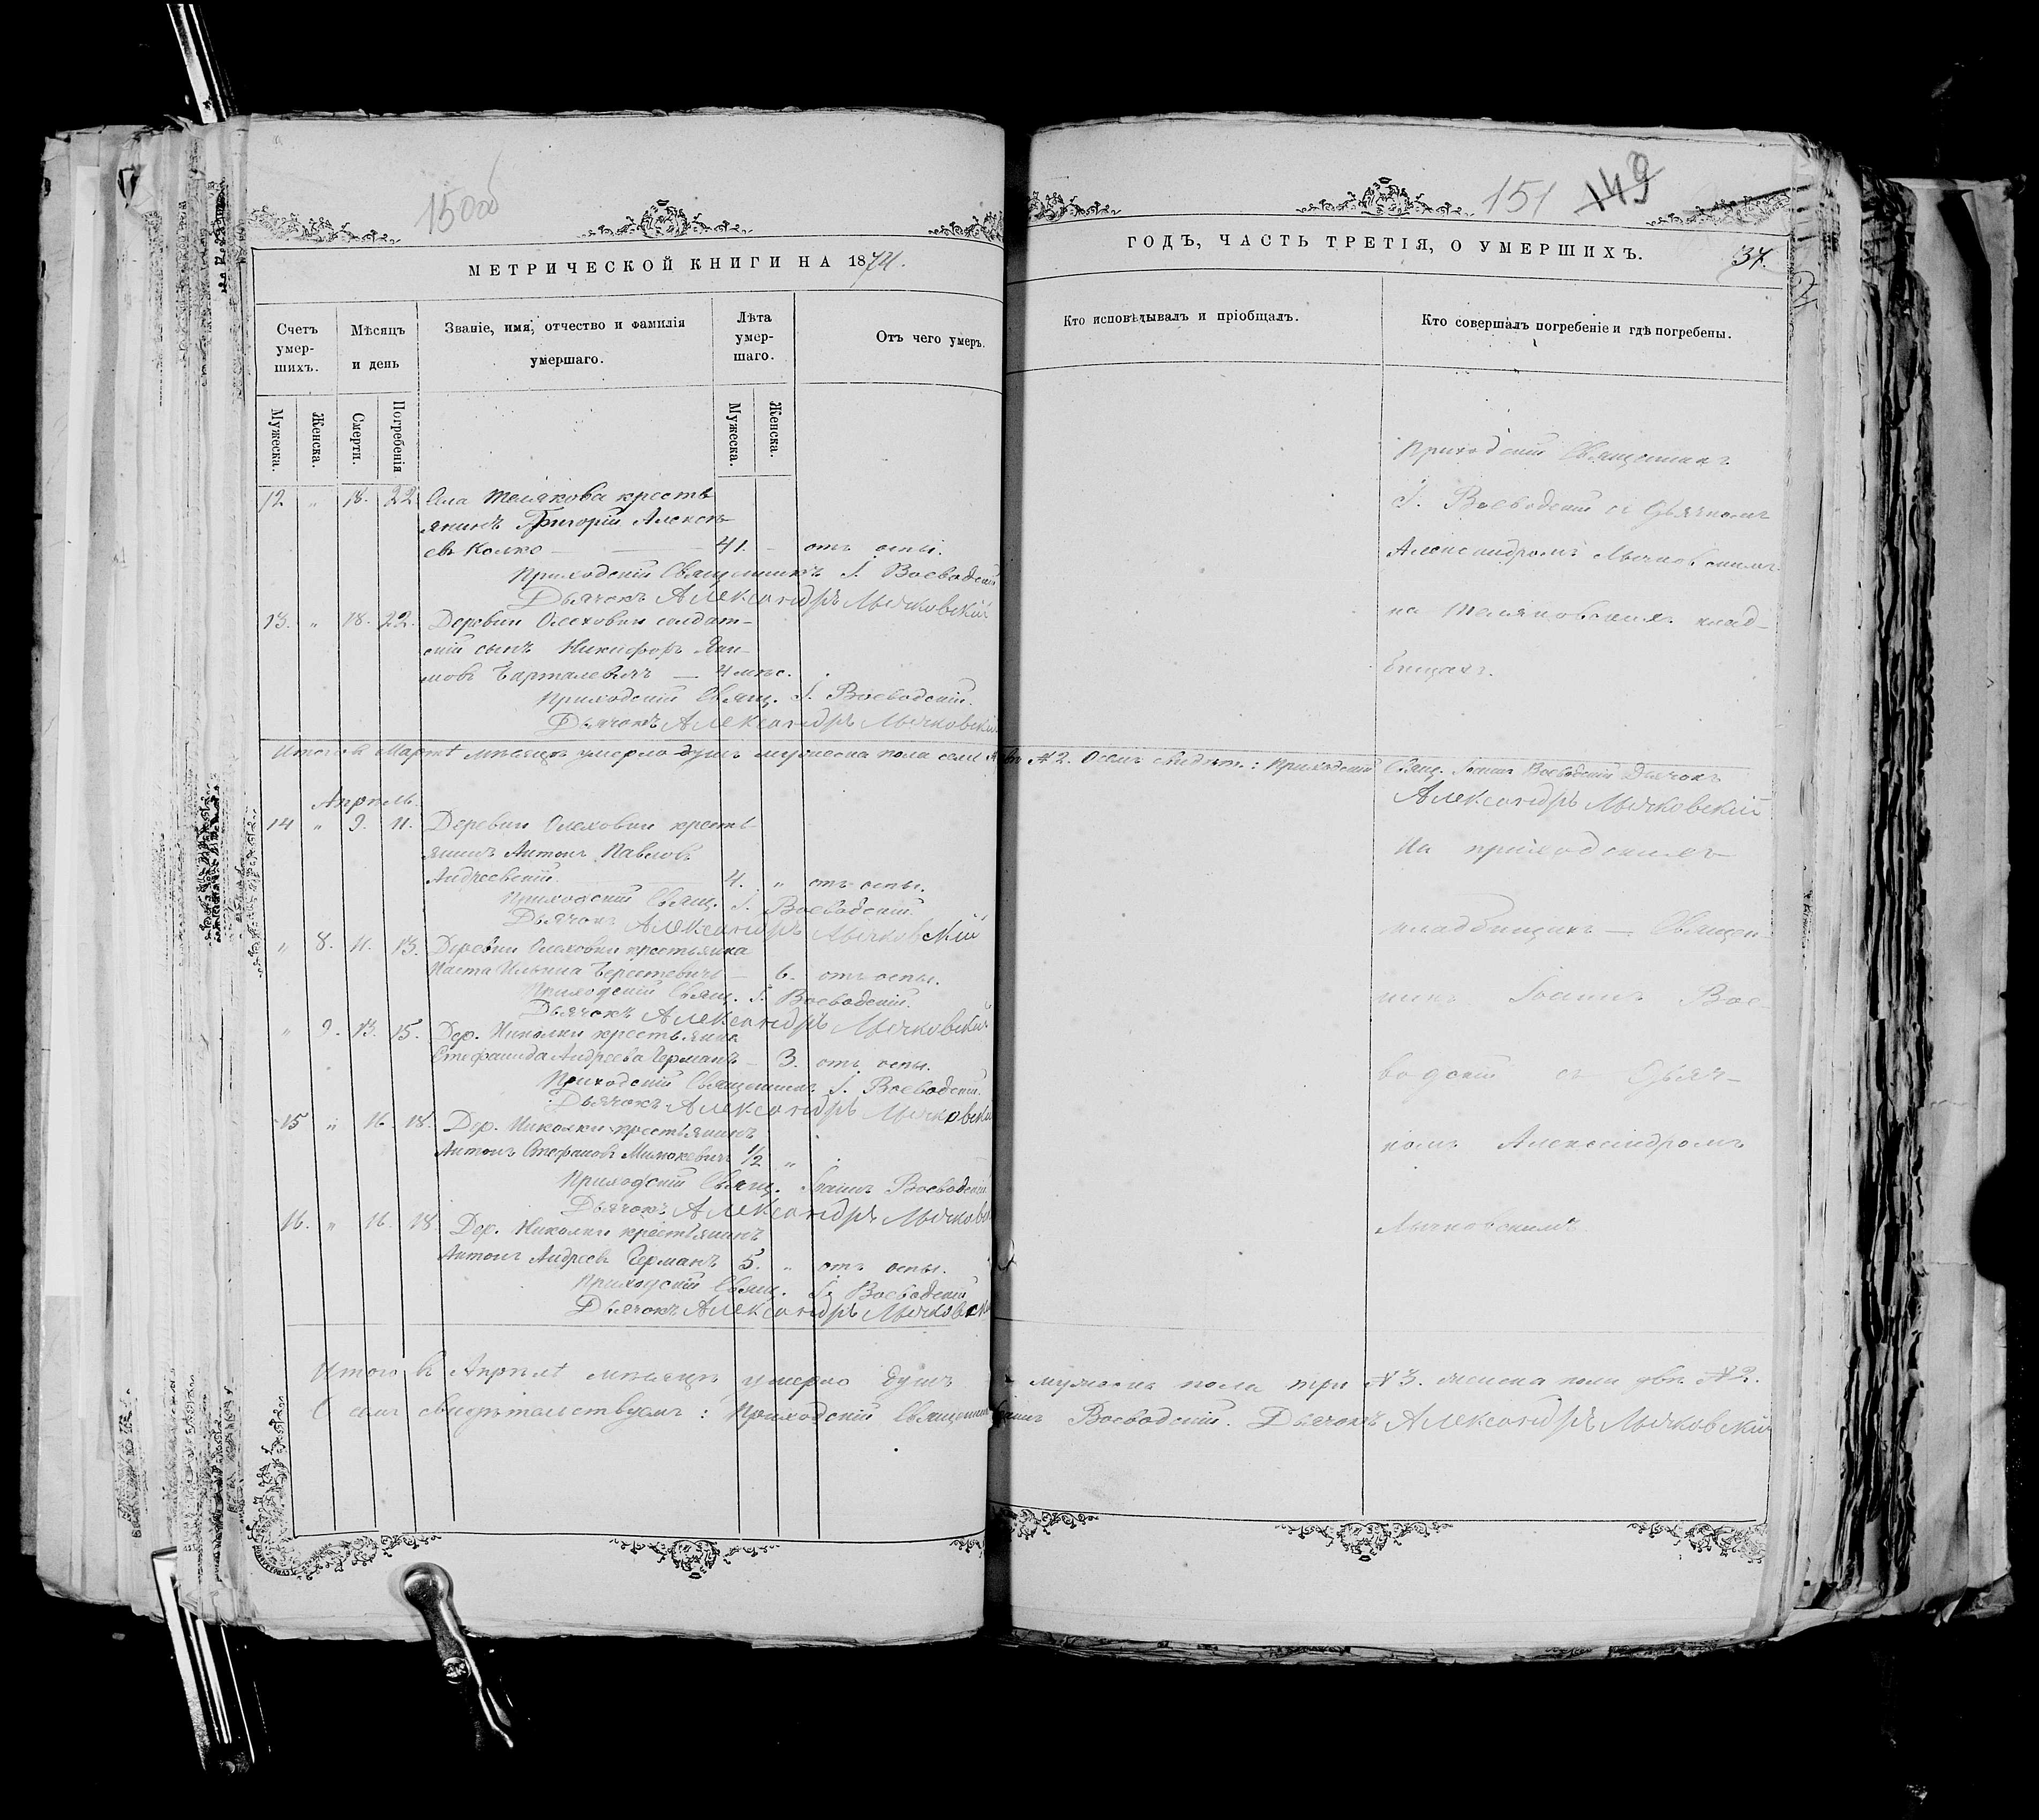 150об
МЕТРИЧЕСКОЙ КНИГИ НА 1874.
Счетъ умер- шихъ.
Мѣсяцъ и день
Званіе, имя, отчество и фамилія умершаго.
Лѣта умер- шаго.
Отъ чего умеръ.
Мужеска.
Женска.
Смерти.
Погребенія
Мужеска.
Женска.
12 " 18. 22 Села Телякова кресть
янинъ Григорій Алексѣ-
евъ Колко — 41. - отъ оспы.
Приходскій Священникъ І. Воеводскій
Дьячокъ Александръ Мычковскій
13. " 18. 22. Деревни Олеховки солдат-
скій сынъ Никифоръ
4 мѣс.
Приходскій Свящ. І. Воеводскій.
Дьячокъ Александръ Мычковскій
Итого въ Мартѣ мѣсяцѣ умерло душъ мужеска пола
Апрѣль
14 " 9. 11. Деревни Олеховки кресть-
янинъ Антонъ Павловъ
Андреевскій 4. " отъ оспы.
Приходскій Свящ. І. Воеводскій
Дьячокъ Александръ Мычковскій
" 8. 11. 13. Деревни Олеховки крестьянка
Ильина Берестевичъ — 6. отъ оспы.
Приходскій Свящ. І. Воеводскій.
Дьячокъ Александръ Мычковскій
" 9. 13. 15. Дер. Николки крестьянка
Стефанида Андреева Германъ — 3. отъ оспы.
Приходскій Священникъ І. Воеводскій.
Дьячокъ Александръ Мычковскій
15 " 16. 18. Дер. Николки крестьянинъ
Антонъ Стефановъ 1/2 "
Приходскій Свящ. Іоаннъ Воеводскій
Дьячокъ Александръ Мычковс
16. " 16. 18. Дер. Николки крестьянинъ
Антонъ Андреевъ Германъ 5. " отъ оспы.
Приходскій Свящ. І. Воеводскій
Дьячокъ Александръ Мычковск
Итого въ Апрѣлѣ мѣсяцѣ умерло душъ
О семъ свидѣтельствуемъ: Приходскій Священникъ
151 149
ГОДЪ, ЧАСТЬ ТРЕТІЯ, О УМЕРШИХЪ.
37.
Кто исповѣдывалъ и пріобщалъ.
Кто совершалъ погребеніе и гдѣ погребены.
Приходскій Священникъ
І. Воеводскій съ Дьячкомъ
Александромъ Мычковскимъ
на Теляковскихъ клад-
бищахъ.
№ 2. О семъ свидѣт.: Приходскій Свящ. Іоаннъ Воеводскій Дьячокъ
Александръ Мычковскій
На приходскихъ
кладбищахъ — Священ-
никъ Іоаннъ Вое-
водскій съ Дьяч-
комъ Александромъ
Мычковскимъ.
мужеска пола три № 3. женска пола двѣ № 2.
Воеводскій. Дьячокъ Александръ Мычковскій